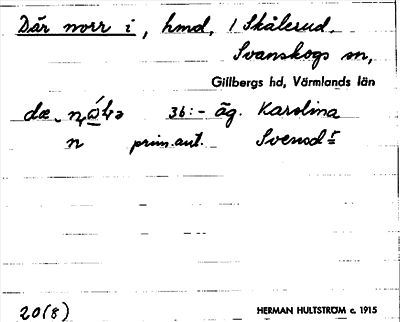 Där norr i, hmd, / Skålerud.
Svanskogs sn,
Gillbergs hd, Värmlands län
36:- äg. Karolina
n prim.aut. Svensd r=
20(8)
HERMAN HULTSTRÖM c. 1915